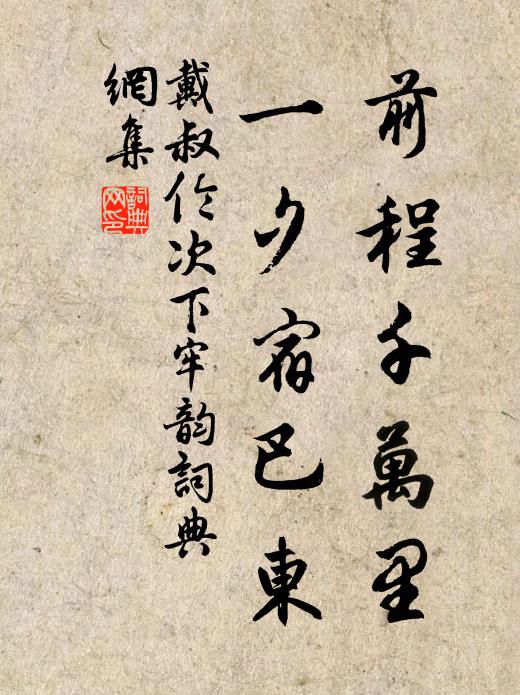 前程千萬里
一夕宿巴東
戴叔倫次下牢韵詞典
網集
詞典網印